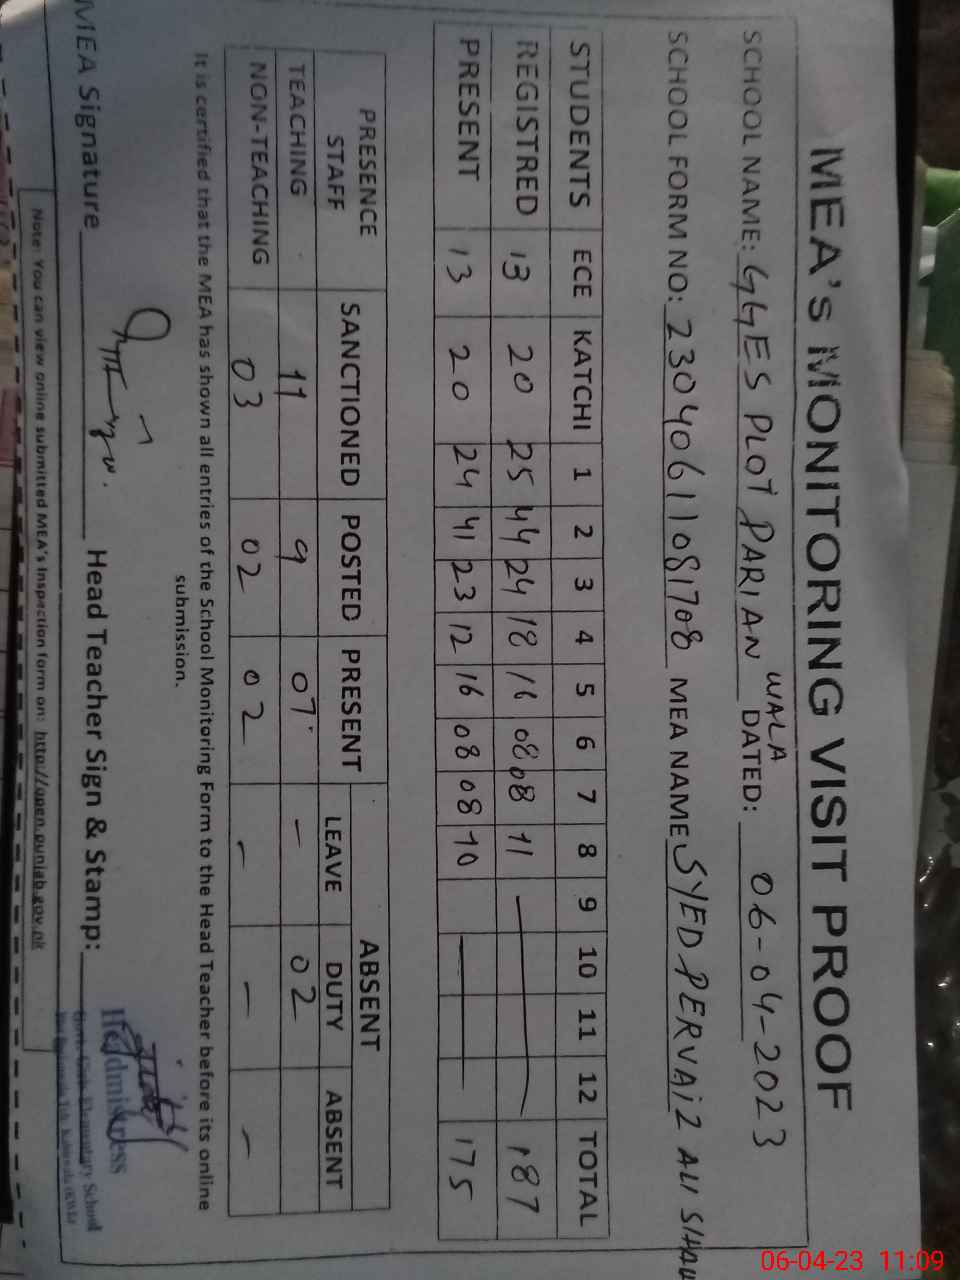 MEA's MONITORING VISIT PROOF
SCHOOL NAME: GGES PLOT PARIAN WALA DATED: 06-04-2023
SCHOOL FORM NO: 23040611081708 MEA NAME SYED PERVAIZ ALI SHAH
STUDENTS ECE KATCHI 1 2 3 4 5 6 7 8 9 10 11 12 TOTAL
REGISTRED 13 20 25 44 24 18 16 08 08 11 — 187
PRESENT 13 20 24 41 23 12 16 08 08 10 — 175
PRESENCE STAFF SANCTIONED POSTED PRESENT ABSENT
LEAVE DUTY ABSENT
TEACHING 11 9 07 – 02
NON-TEACHING 03 02 02 – – –
It is certified that the MEA has shown all entries of the School Monitoring Form to the Head Teacher before its online
submission.
MEA Signature Head Teacher Sign & Stamp:
Headmistress
Govt. Girls Elementary School
Note: You can view online submitted MEA's Inspection form on: http://open.punjab.gov.pk
06-04-23 11:09